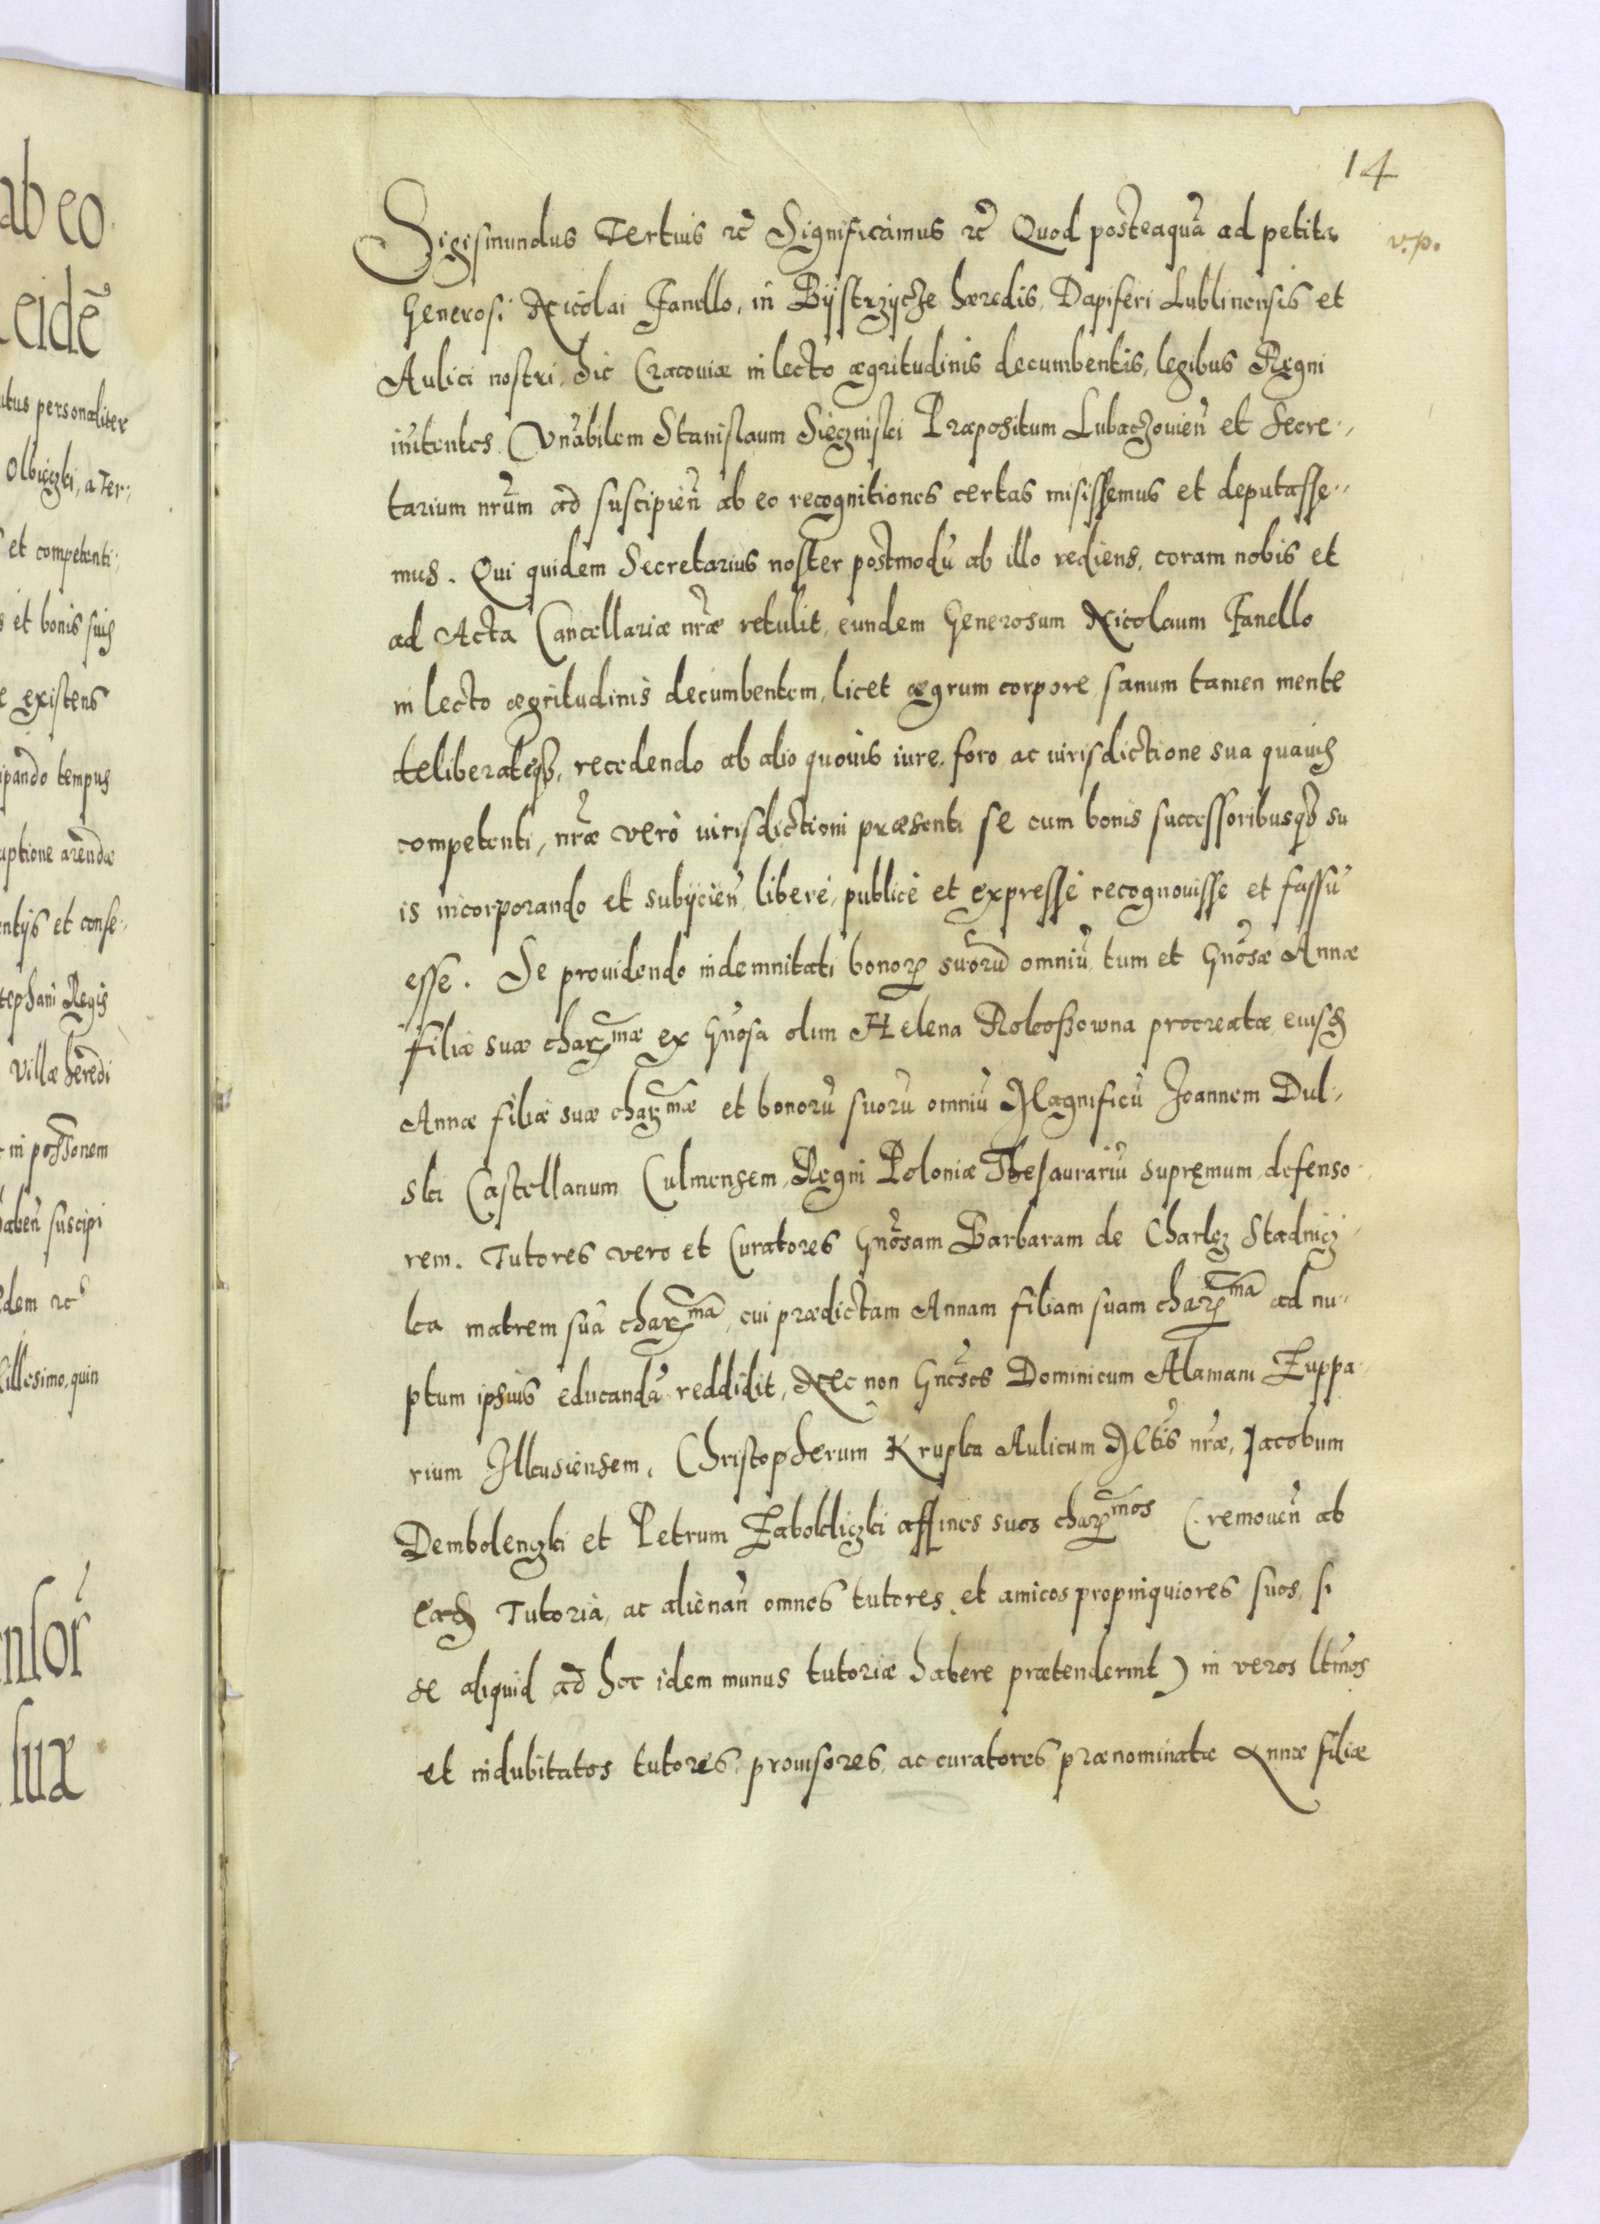 ab eo
eidē
utus personaliter
Olbięzki, a Ter:
et competenti:
et bonis suis
existens
ipando tempus
uptione arendæ
entijs et conse:
tephani Regis
Villæ hæredi
in possonem
habeñ suscipi
dem ꝛc
illesimo, quin
ensor
suæ
14
Sigismundus Tertius ꝛc̃ Significamus ꝛc̃ Quod posteaquā ad petita v.p.
Generosi Nicolai Fanello, in Bijstrzijcze hæredis, Dapiferi Lublinensis et
Aulici nostri, hic Cracoviæ in lecto ægritudinis decumbentis, legibus Regni
initentes Vnābilem Stanislaum Sieczniski Præpositum Lubaczouieñ et Secre:
tarium nr̃um ad suscipieñ ab eo recognitiones certas misissemus et deputasse:
mus. Qui quidem Secretarius noster postmodū ab illo rediens, coram nobis et
ad Acta Cancellariæ nr̃æ retulit, eundem Generosum Nicolaum Fanello
in lecto ægritudinis decumbentem, licet ægrum corpore, sanum tamen mente
deliberateqȝ, recedendo ab alio quouis iure, foro ac iurisdictione sua quauis
competenti, nr̃æ verò iurisdictioni præsenti se cum bonis successoribusqȝ su
is incorporando et subijcieñ, liberè, publicè et expressè recognouisse et fassū
esse. Se prouidendo indemnitati bonorꝝ suorū omniū tum et Gñosæ Annæ
filiæ suæ charꝝmæ ex Gñosa olim Helena Rokossowna procreatæ, eiusd
Annæ filiæ suæ charꝝmæ et bonorū suorū omniū Magnificū Joannem Dul:
ski Castellanum Culmensem, Regni Poloniæ Thesaurariū supremum, defenso:
rem. Tutores vero et Curatores Gñosam Barbaram de Charlęz Stadnicz:
ka matrem suā charꝝmā, cui prædictam Annam filiam suam charꝝmā ad nu:
ptum ipsius educandā reddidit, Nec non Gñosos Dominicum Alamani Zuppa:
rium Ilkusiensem, Christopherum Krupka Aulicum Mtis nr̃æ, Jacobum
Dembolenzki et Petrum Zabokliczki affines suos charꝝmos (: remoueñ ab
ead Tutoria, ac alienañ omnes tutores et amicos propinquiores suos, si
se aliquid ad hoc idem munus tutoriæ habere prætenderint) in veros ltm̃os
et indubitatos tutores, prouisores, ac curatores prænominatæ Annæ filiæ